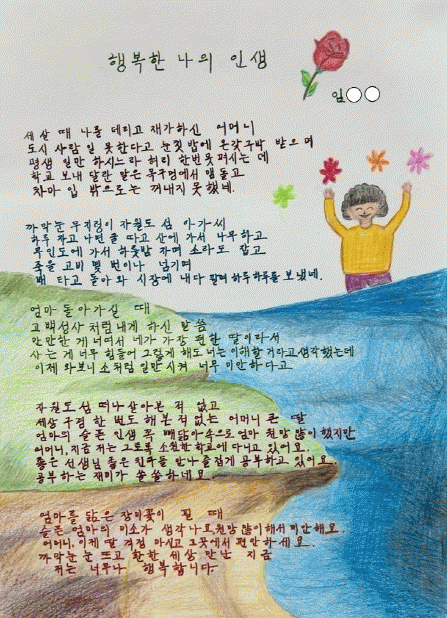 행복한 나의 인생
임○○
세살 때 나를 데리고 재가하신 어머니
도시 사람 일 못한다고 눈칫밥에 온갖구박 받으며
평생 일만 하시느라 허리 한번 못펴시는 데
학교 보내 달란 말은 목구멍에서 맴돌고
차마 입 밖으로는 꺼내지 못했네.
까막눈 무지렁이 자원도 섬 아가씨
하루 자고 나면 굴 따고 산에 가서 나무하고
무인도에 가서 하룻밤 자며 소라도 잡고
죽을 고비 몇 번이나 넘기며
배 타고 돌아와 시장에 내다 팔며 하루하루를 보냈네.
엄마 돌아가실 때
고백성사 처럼 내게 하신 말씀
만만한 게 너여서 네가 가장 편한 딸이라서
사는 게 너무 힘들어 그렇게 해도 너는 이해할 거라고 생각했는데
이제 와보니 소처럼 일만 시켜 너무 미안하다고
자원도 섬 떠나 살아본 적 없고
세상 구경 한 번도 해본 적 없는 어머니 큰 딸
엄마의 슬픈 인생 꼭 빼닮아 속으로 엄마 원망 많이 했지만
어머니, 지금 저는 그토록 소원한 학교에 다니고 있어요.
좋은 선생님 좋은 친구들 만나 즐겁게 공부하고 있어요.
공부하는 재미가 쏠쏠하네요.
엄마를 닮은 장미꽃이 필 때
슬픈 엄마의 미소가 생각나요 원망 많이해서 미안해요.
어머니, 이제 딸 걱정 마시고 그곳에서 편안하세요.
까막눈 눈 뜨고 환한 세상 만난 지금
저는 너무나 행복합니다.